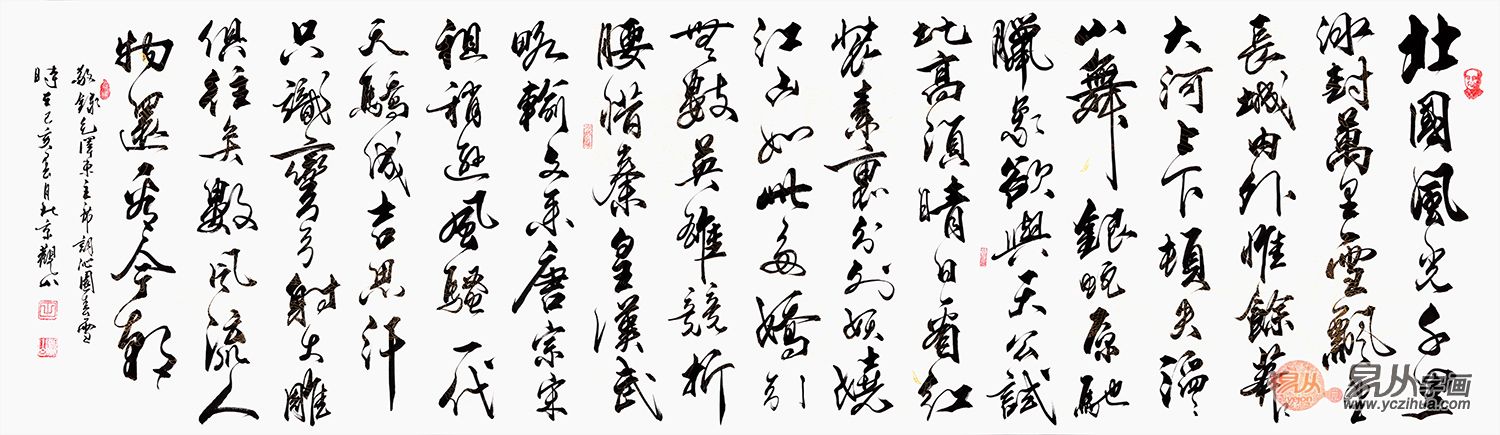 北國風光千里
冰封萬里雪飄望
長城內外惟餘莽々
大河上下頓失滔々
山舞銀蛇原馳
臘象欲與天公試
比高須晴日看紅
裝素裹分外妖嬈
江山如此多嬌引
無數英雄競折
腰惜秦皇漢武
略輸文采唐宗宋
祖稍遜風騷一代
天驕成吉思汗
只識彎弓射大雕
俱往矣數風流人
物還看今朝
敬錄毛澤東主席詞沁園春雪
時在己亥月京觀山
易从字画
www.yczihua.com